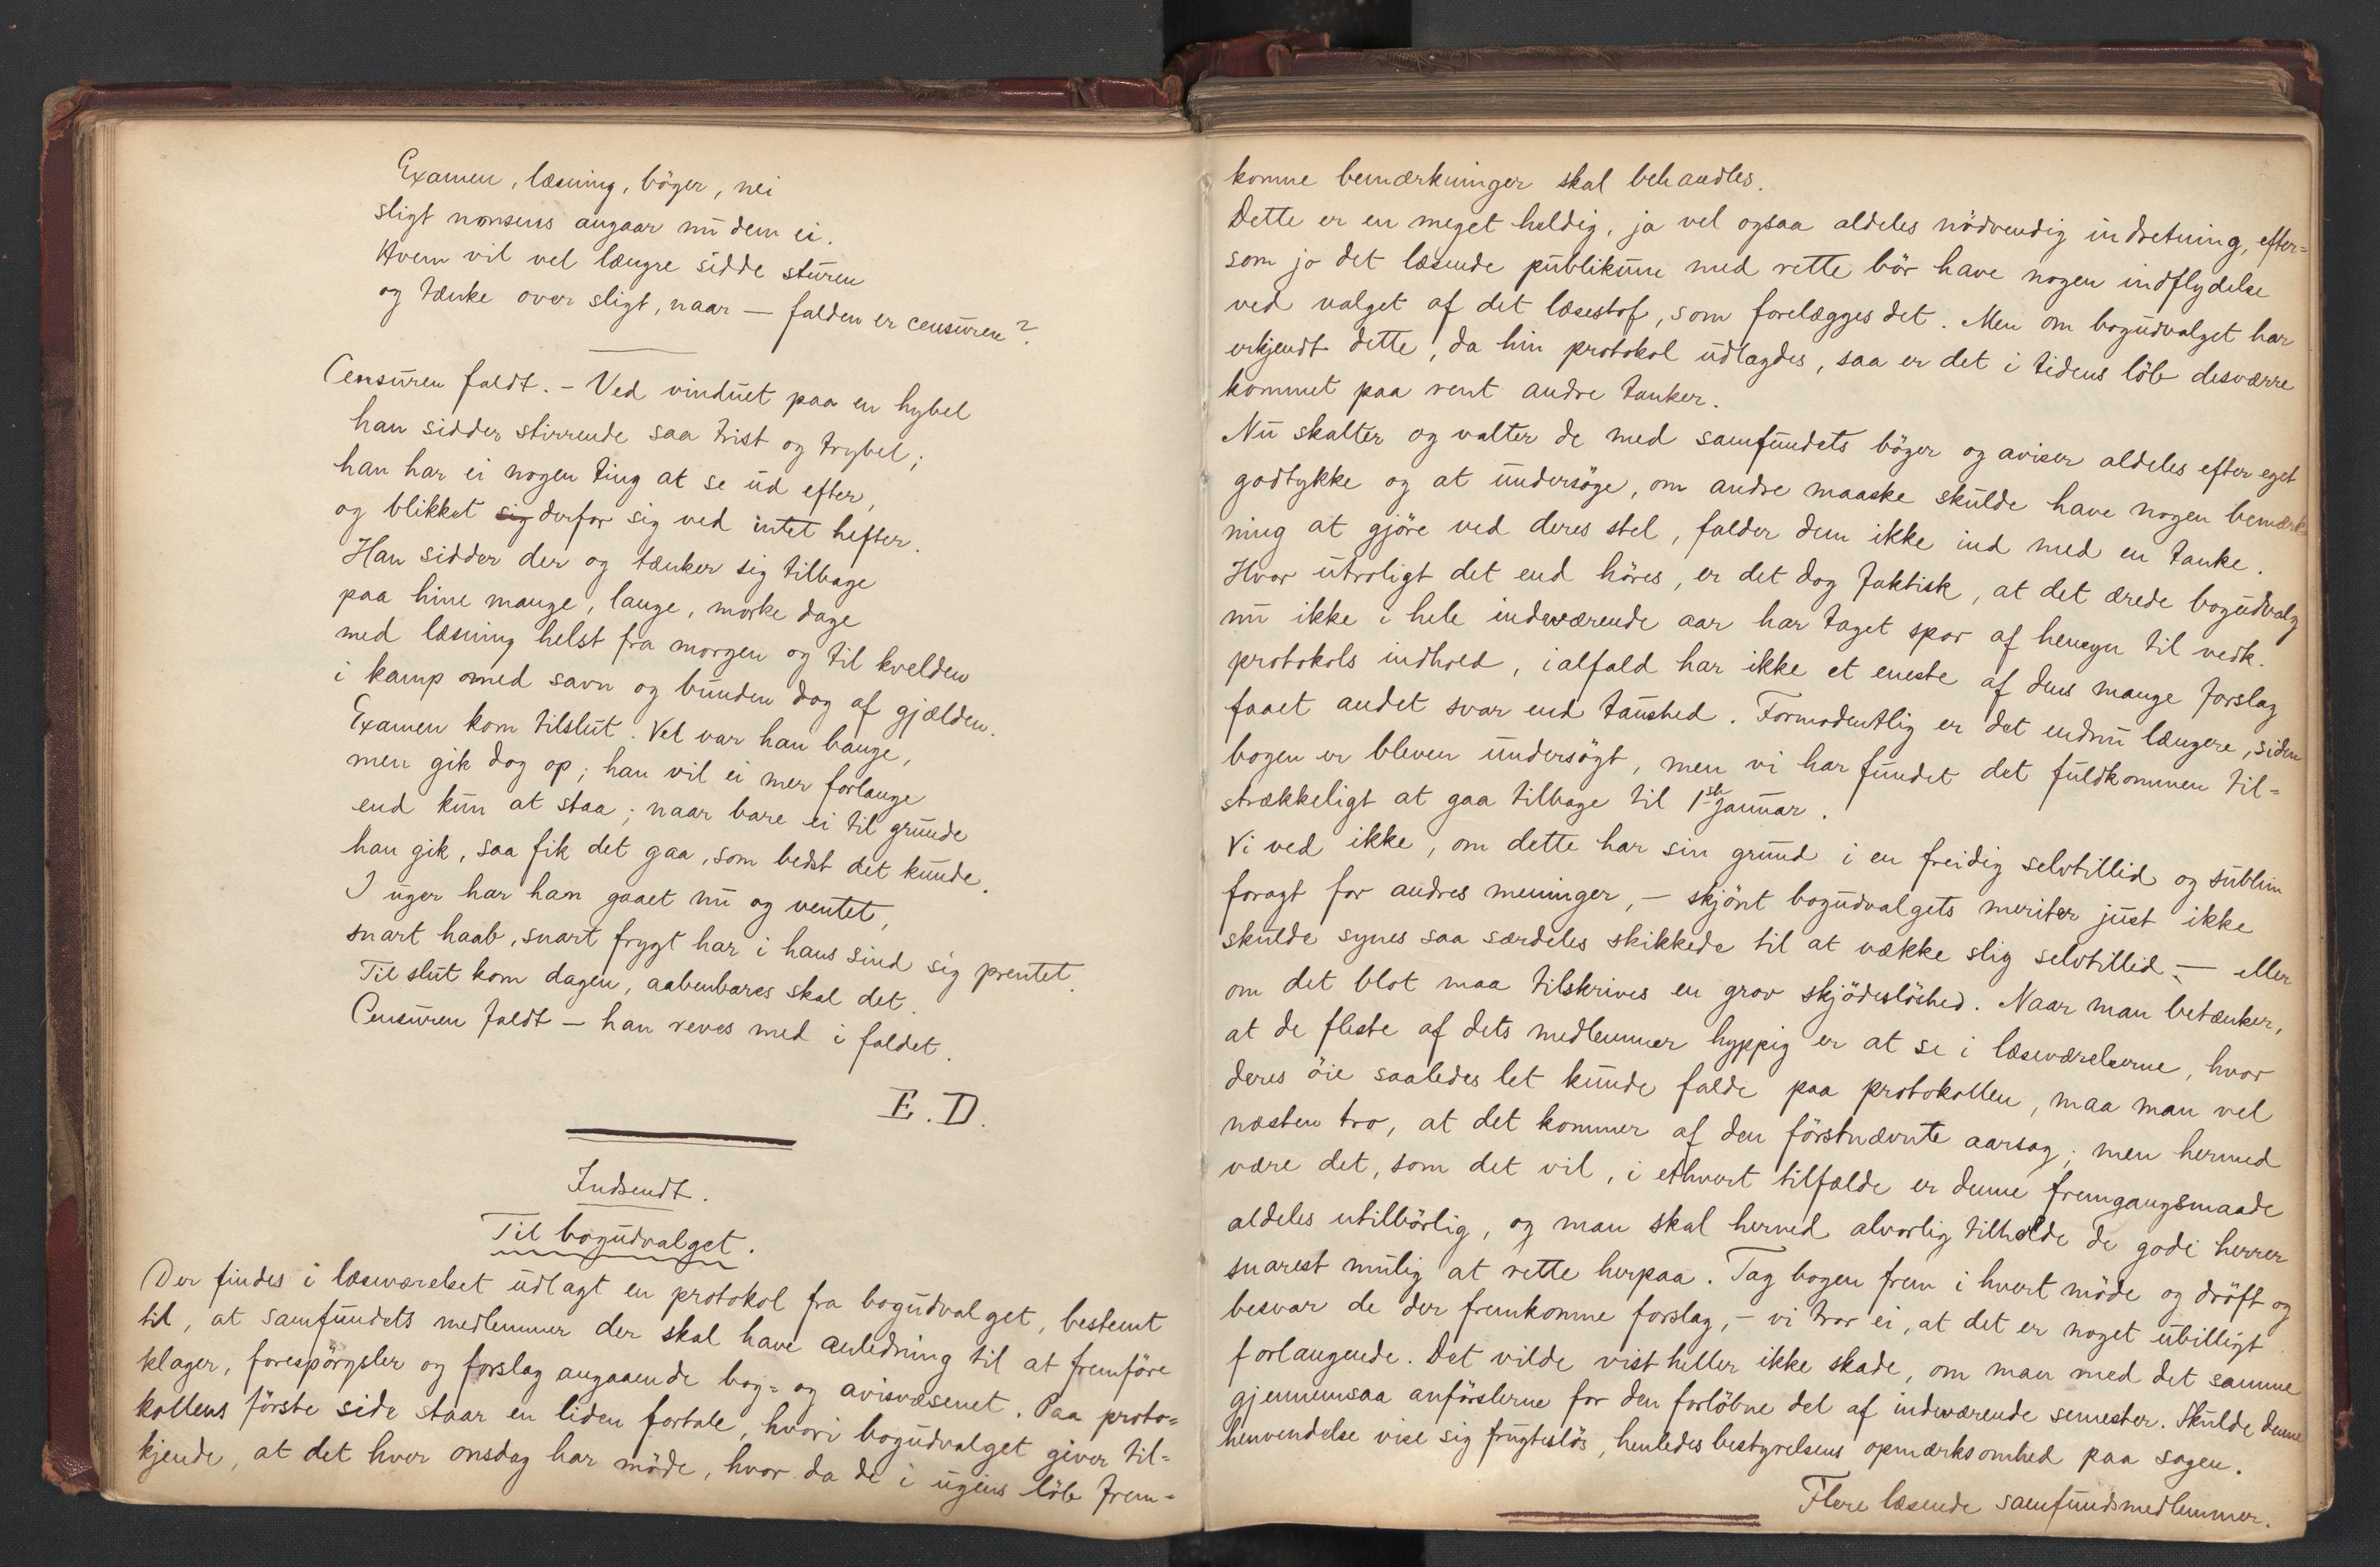 Examen, læsning, böger, nei
sligt nonsens angaar nu dem ei.
Hvem vil vel længre sidde sturen
og tænke over sligt, naar — falden er censuren?
Censuren faldt. — Ved vinduet paa en hybel
han sidder stirrende saa trist og trybel;
han har ei nogen ting at se ud efter,
og blikket sig derfor sig ved intet hefter.
Han sidder der og tænker sig tilbage
paa hine mange, lange, mørke dage
med læsning helst fra morgen og til kvelden
i kamp med savn og bunden dog af gjælden.
Examen kom tilslut. Vel var han bange,
men gik dog op; han vil ei mer forlange
end kun at staa; naar bare ei til grunde
han gik, saa fik det gaa, som bedst det kunde.
I uger har han gaaet nu og ventet,
snart haab, snart frygt har i hans sind sig prentet.
Til slut kom dagen, aabenbares skal det.
Censuren faldt — han reves med i faldet.
E. D.
Indsendt.
Til bogudvalget.
Der findes i læseværelset udlagt en protokol fra bogudvalget, bestemt
til, at samfundets medlemmer der skal have anledning til at fremföre
klager, forespörgsler og forslag angaaende bog- og avisvæsenet. Paa proto=
kollens förste side staar en liden fortale, hvori bogudvalget giver til=
kjende, at det hver onsdag har möde, hvor da de i ugens löb frem=
komne bemærkninger skal behandles.
Dette er en meget heldig, ja vel ogsaa aldeles nödvendig indretning, efter=
som jo det læsende publikum med rette bör have nogen indflydelse
ved valget af det læsestof, som forelægges det. Men om bogudvalget har
erkjendt dette, da hin protokol udlagdes, saa er det i tidens löb desværre
kommet paa rent andre tanker.
Nu skalter og valter de med samfundets böger og aviser aldeles efter eget
godtykke og at undersöge, om andre maaske skulde have nogen bemærk=
ning at gjöre ved deres stel, falder dem ikke ind med en tanke.
Hvor utroligt det end höres, er det dog faktisk, at det ærede bogudvalg
nu ikke i hele indeværende aar har taget spor af hensyn til vedk.
protokols indhold, ialfald har ikke et eneste af dens mange forslag
faaet andet svar end taushed. Formodentlig er det endnu længere, siden
bogen er bleven undersögt, men vi har fundet det fuldkommen til=
strækkeligt at gaa tilbage til 1ste januar.
Vi ved ikke, om dette har sin grund i en freidig selvtillid og sublim
foragt for andres meninger, — skjönt bogudvalgets meriter just ikke
skulde synes saa særdeles skikkede til at vække slig selvtillid, — eller
om det blot maa tilskrives en grov skjödeslöshed. Naar man betænker,
at de fleste af dets medlemmer hyppig er at se i læseværelserne, hvor
deres öie saaledes let kunde falde paa protokollen, maa man vel
næsten tro, at det kommer af den förstnævnte aarsag; men hermed
være det, som det vil, i ethvert tilfælde er denne fremgangsmaade
aldeles utilbörlig, og man skal herved alvorlig tilholde de gode herrer
snarest mulig at rette herpaa. Tag bogen frem i hvert möde og dröft og
besvar de der fremkomne forslag, — vi tror ei, at det er noget ubilligt
forlangende. Det vilde vist heller ikke skade, om man med det samme
gjennemsaa anförslerne for den forlöbne del af indeværende semester. Skulde denne
henvendelse vise sig frugteslös, henledes bestyrelsens opmærksomhed paa sagen.
Flere læsende samfundsmedlemmer.